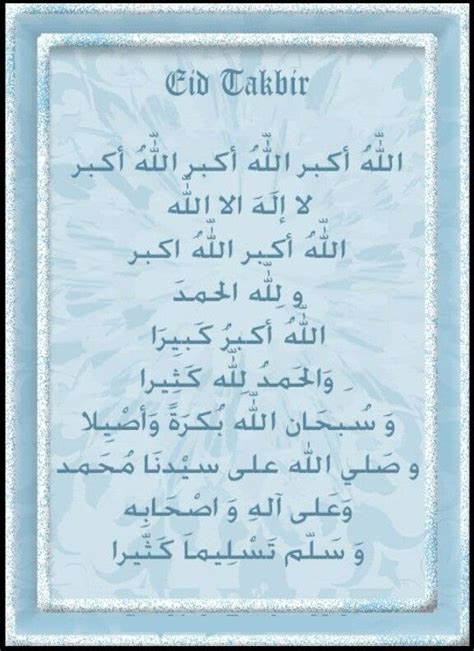 Eid Takbir
اللّٰهُ أكبر اللّٰهُ أكبر اللّٰهُ أكبر
لا إلَهَ الا اللّٰه
اللّٰهُ أكبر اللّٰهُ اكبر
و لِلّٰه الحمدَ
اللّٰهُ أكبرُ كَبِيرَا
وَالحَمدُ لِلّٰه كَثِيرا
وَ سُبحَان اللّٰه بُكرَةً وَأصْيِلا
و صَلي اللّٰه على سيْدنَا مُحَمد
وَعَلى آلهِ وَ اصْحَابِه
وَ سَلّم تَسْلِيماَ كَثّيرا